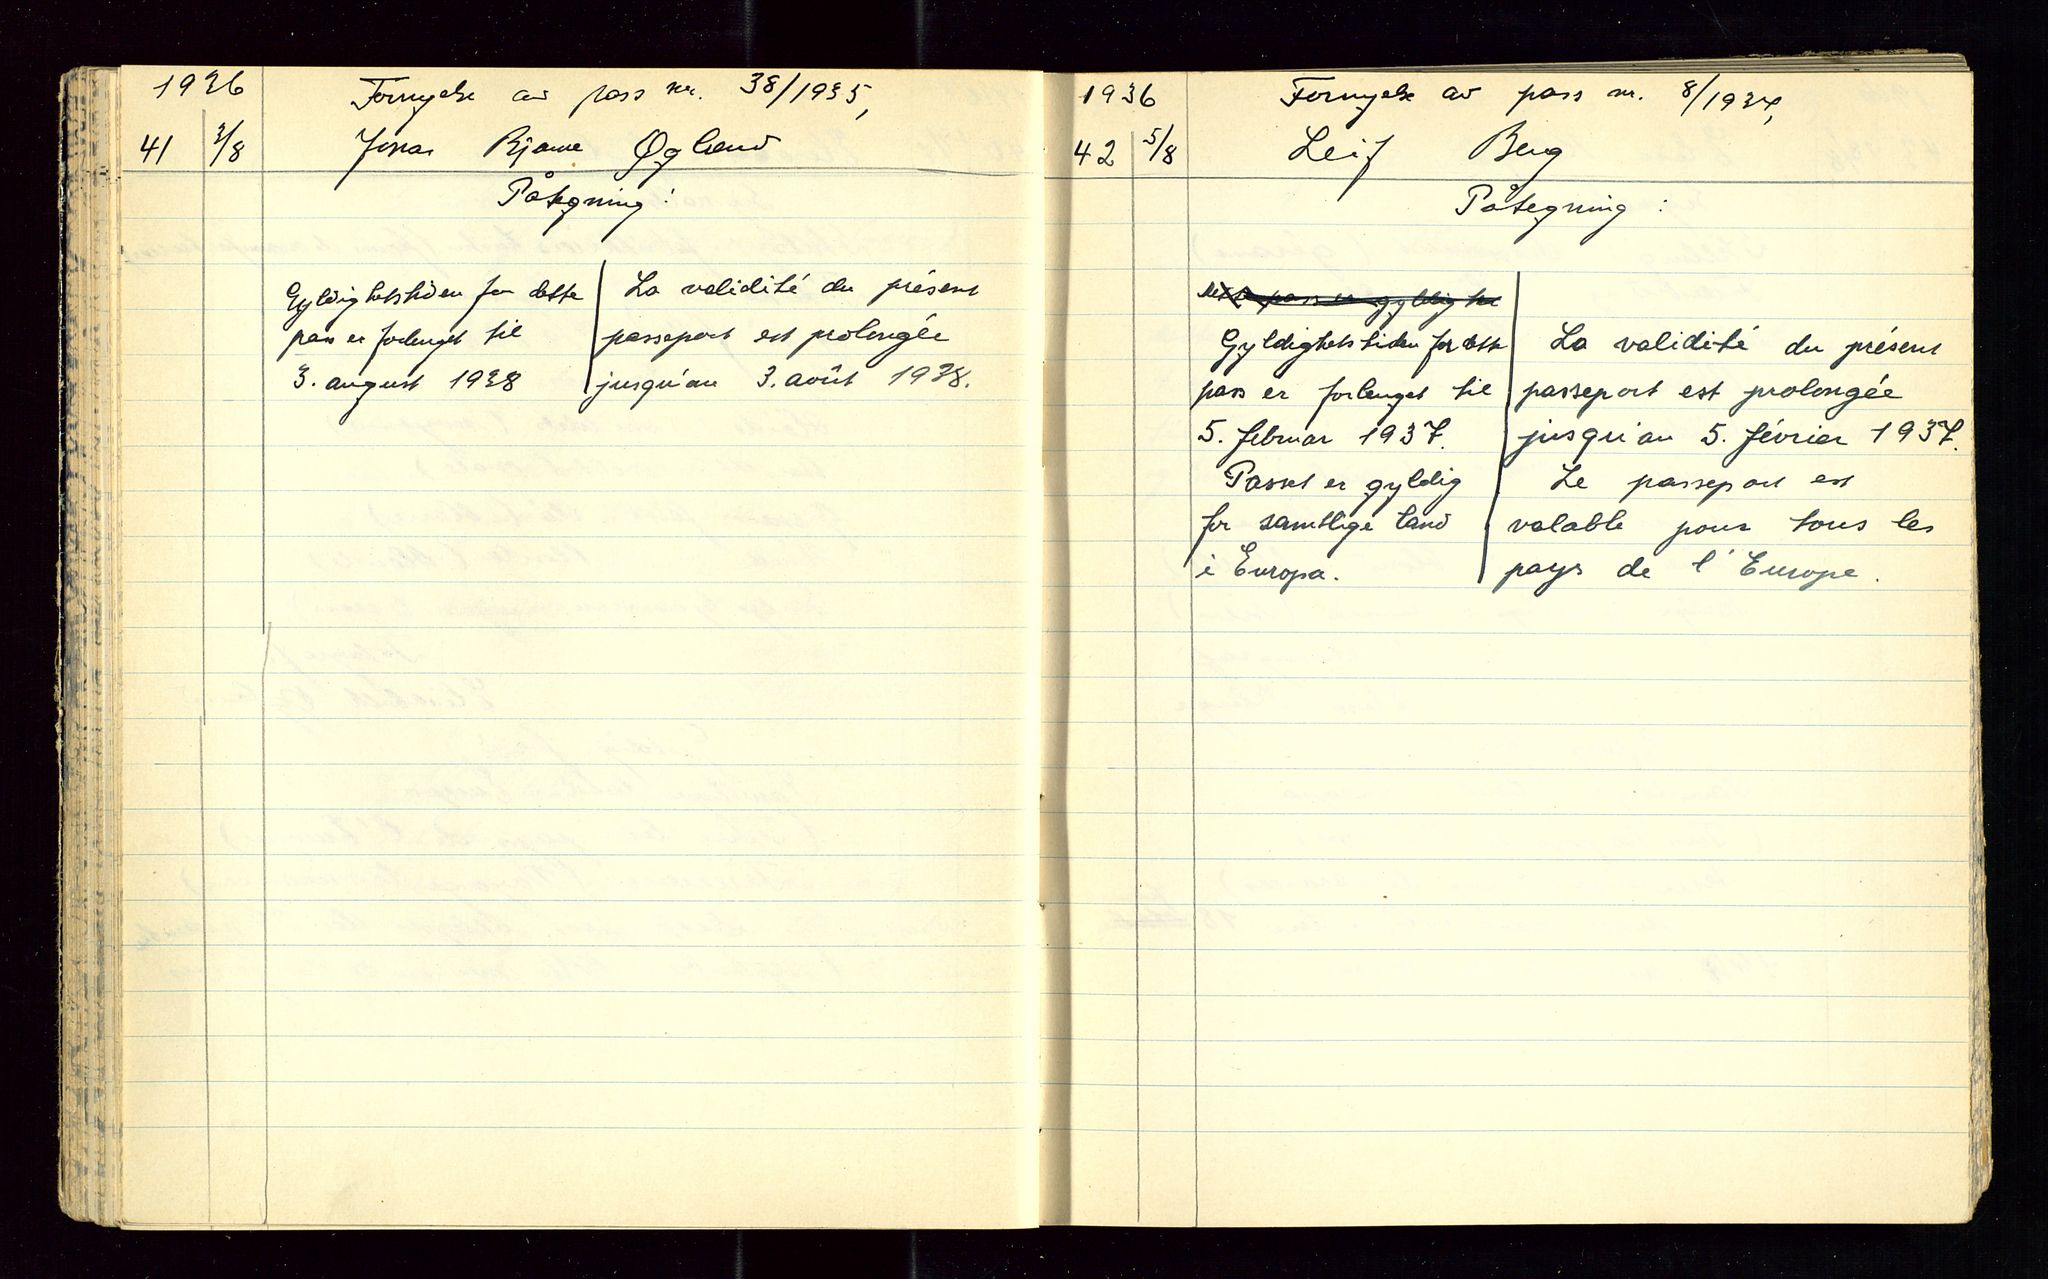 1936 Fornyelse av pass nr. 38/1935,
41 3/8 Jonas Bjarne Øgland
Påtegning:
Gyldighetstiden for dette
pass er forlenget til
3. august 1938
La validité du présent
passeport est prolongée
jusqu'au 3. août 1938.
1936 Fornyelse av pass nr. 8/1934,
42 5/8 Leif Berg
Påtegning:
pass er gyldig
Gyldighetstiden for dette
pass er forlenget til
5. februar 1937.
Passet er gyldig
for samtlige land
i Europa.
La validité du présent
passeport est prolongée
jusqu'au 5. février 1937.
Le passeport est
valable pour tous les
pays de l'Europe.